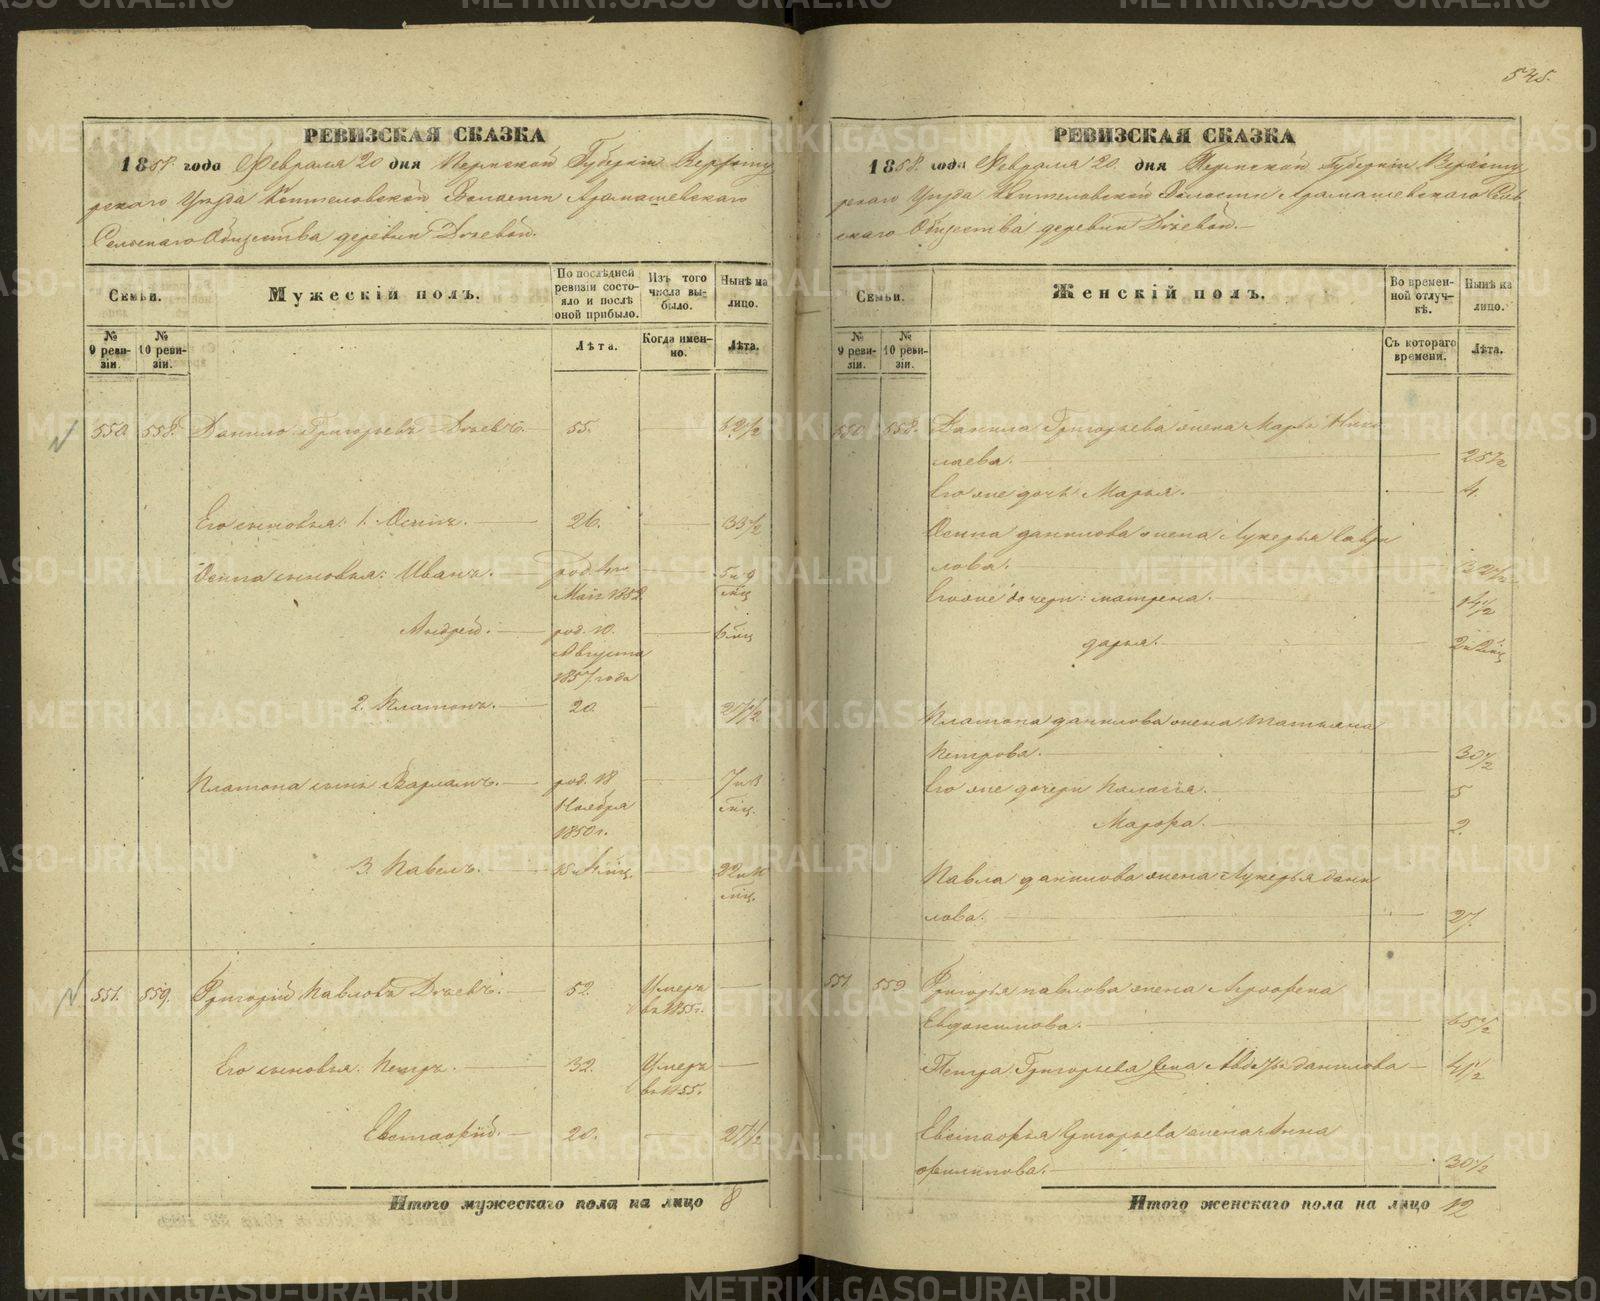 545.
РЕВИЗСКАЯ СКАЗКА
1858 года Февраля 20 дня Пермской Губернии Верхоту
рскаго Уезда Коптеловской Волости Арамашевскаго
Сельскаго Общества деревни Дӕевой.
Семьи.
Мужескій полъ.
По послѣдней ревизіи состояло и послѣ оной прибыло.
Изъ того числа выбыло.
Нынѣ на лицо.
№ 9 ревизіи.
№ 10 ревизіи.
Лѣта.
Когда именно.
Лѣта.
550. 558. Данило Григорьевъ 55. 62½
Его сыновья: 1. Осипъ. 26. 33½
Осипа сыновья: Иванъ. род. Мая 1852 5 и 9 мѣц
Андрей. род. 10. Августа 1857 года 6 мѣц
2. Платонъ. 20. 27½
Платона сынъ Варламъ. род. 18 Ноября 1850 г. 7 и 3 мѣц.
3. Павелъ. 22 и мѣц.
551. 559. Григорій Павловъ 52. Умеръ въ 1855 г.
Его сыновья: Петръ. 32. Умеръ въ 1855 г.
Евстафій. 20. 27½
Итого мужескаго пола на лицо 8
РЕВИЗСКАЯ СКАЗКА
1858 года Февраля 20 дня Пермской Губерніи Верхоту
рскаго Уезда Коптеловской Волости Арамашевскаго Сель
скаго Общества деревни
Семьи.
Женскій полъ.
Во временной отлучкѣ.
Нынѣ на лицо.
№ 9 ревизіи.
№ 10 ревизіи.
Съ котораго времени.
Лѣта.
550 558. Данила Григорьева жена Марья Нико
лаева. 25½
Его же дочь Марья. 4.
Осипа Данилова жена Лукерья Гаври
лова. 32½
Его же дочери: Матрена. 14½
Дарья. 2 и 2 мѣц
Платона Данилова жена Татьяна
Петрова. 30½
Его же дочери Палагія. 5
Марфа. 2.
Павла Данилова жена Лукерья Дани
лова. 27.
551 559 Григорья Павлова жена Агрофена
Евдокимова. 65½
Петра Григорьева жена Авдотья Данилова 41½
Евстафья Григорьева жена Анна
Филипова. 30½
Итого женскаго пола на лицо 12
METRIKI.GASO-URAL.RU